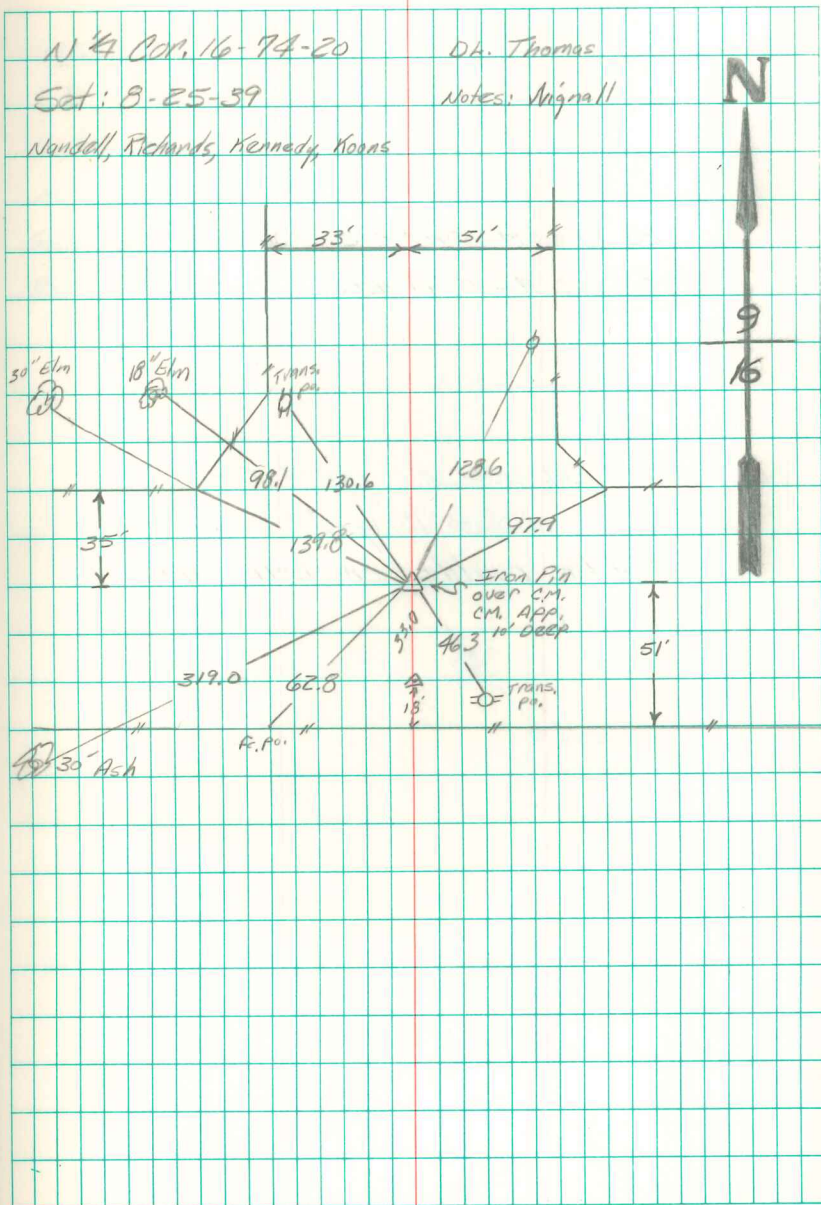 N 1/4 Cor. 16-74-20
D.L. Thomas
Set: 8-25-39
Notes: Wignall
Nandell, Richards, Kennedy, Koons
N
33'
51'
9
16
30" Elm
18" Elm
Trans. po.
98.1
130.6
128.6
35'
139.8
97.9
Iron Pin
over C.M.
C.M. App.
10' Deep
33.0
46.3
51'
319.0
62.8
18'
Trans. po.
Fc. Po.
30" Ash